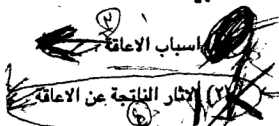 اسباب الاعاقة
(٢) الاثار الناتجة عن الاعاقة